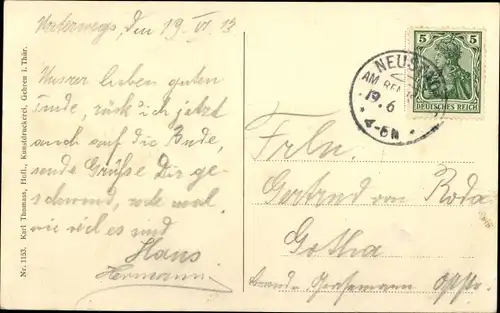 Unterwegs, den 19 VI 13
Unsrer lieben guten
rück ich jetzt
auch auf die Bude,
sende Grüsse Dir ge-
schwind,
wie viel es sind
Hans
Hermann
Nr. 1153. Karl Thomas, Hofl., Kunstdruckerei, Gehren i. Thür.
5 5
DEUTSCHES REICH
NEUST
AM REN
19.6
4-5N
Frln.
Gertrud von Roda
Gotha